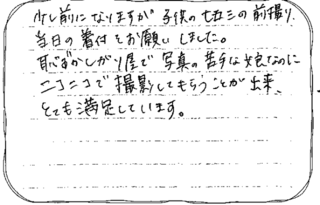 少し前になりますが 子供の七五三の前撮り、
当日の着付をお願いしました。
恥ずかしがり屋で 写真の苦手な娘なのに
ニコニコで撮影してもらうことが出来、
とても満足しています。